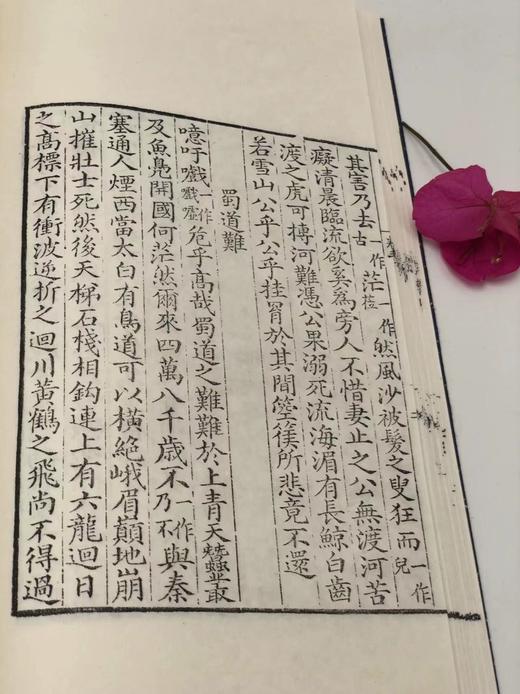 其害乃去一作古茫一作莅然風沙被髮之叟狂而一作兒
癡清晨臨流欲奚爲旁人不惜妻止之公無渡河苦
渡之虎可搏河難憑公果溺死流海湄有長鯨白齒
若雪山公乎公乎挂罥於其間箜篌所悲竟不還
蜀道難
噫吁戲一作戲嘘危乎高哉蜀道之難難於上青天蠶叢
及魚鳧開國何茫然爾來四萬八千歲不一作乃不與秦
塞通人煙西當太白有鳥道可以橫絕峨眉巔地崩
山摧壯士死然後天梯石棧相鈎連上有六龍迴日
之髙標下有衝波逆折之迴川黃鶴之飛尚不得過